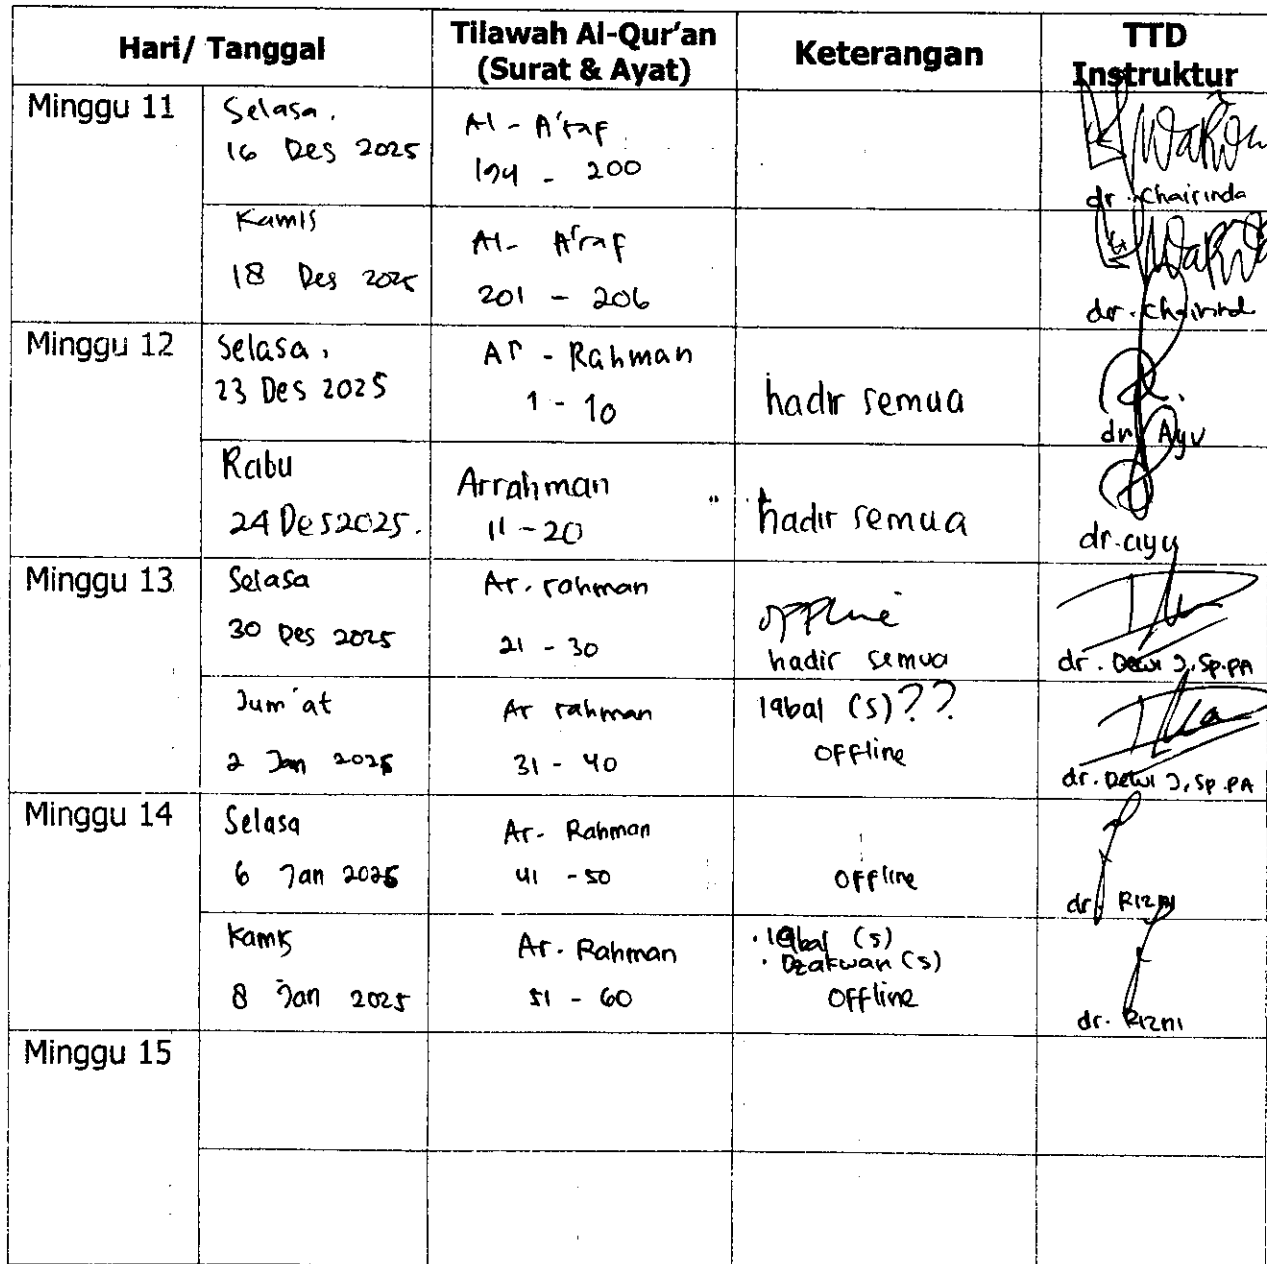 Hari/ Tanggal
Tilawah Al-Qur'an
(Surat & Ayat)
Keterangan
TTD
Instruktur
Minggu 11
Selasa,
16 Des 2025
Al - A'raf
194 - 200
dr. Chairinda
Kamis
18 Des 2025
Al- A'raf
201 - 206
dr. Chairinda
Minggu 12
Selasa,
23 Des 2025
Ar - Rahman
1 - 10
hadir semua
dr Ayu
Rabu
24 Des 2025.
Arrahman
11 - 20
hadir semua
dr. ayu
Minggu 13
Selasa
30 Des 2025
Ar. rahman
21 - 30
offline
hadir semua
dr. Dewi J, Sp.PA
Jum'at
2 Jan 2026
Ar rahman
31 - 40
Iqbal (S)??
Offline
dr. Dewi J, Sp.PA
Minggu 14
Selasa
6 Jan 2026
Ar- Rahman
41 - 50
Offline
dr. Rizni
Kamis
8 Jan 2025
Ar. Rahman
51 - 60
. Iqbal (S)
. Dzakwan (S)
Offline
dr. Rizni
Minggu 15